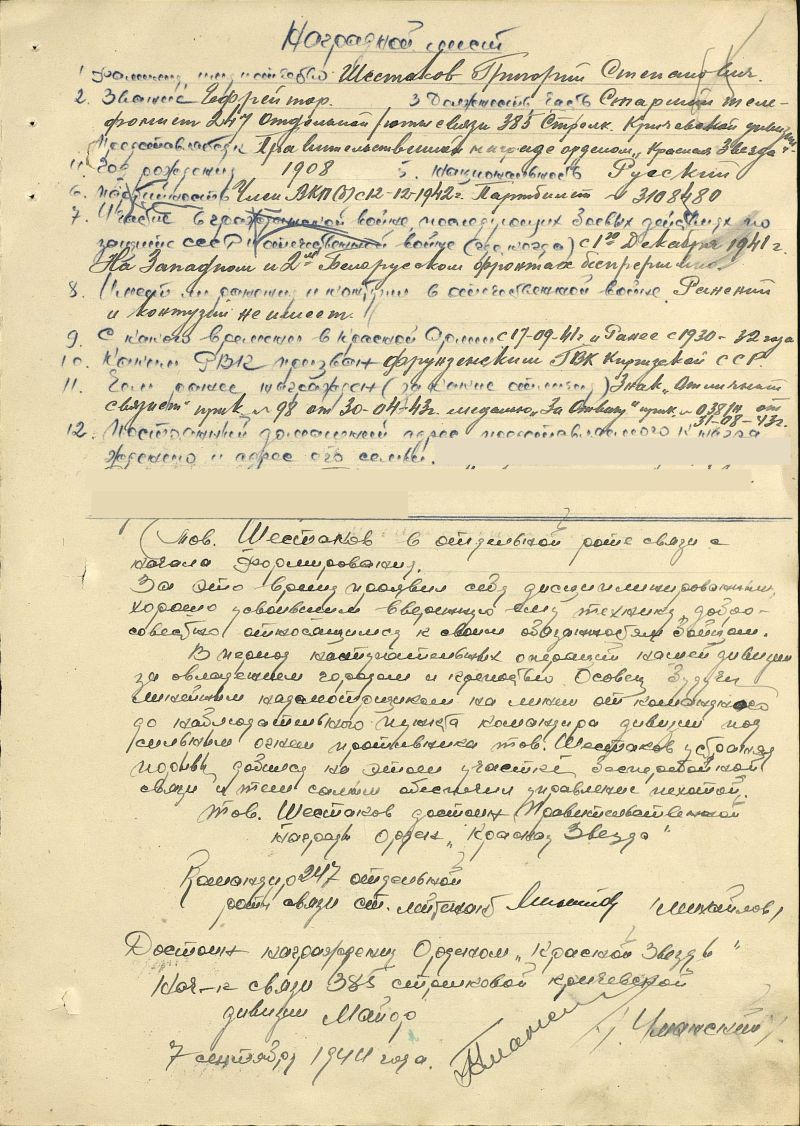 Наградной лист
1. Фамилия, имя, отчество Шестаков Григорий Степанович.
2. Звание Ефрейтор. 3 Должность часть Старший теле-
фонист 247 отдельной роты связи 385 Стрелк. Кричевской дивизии
Представляется к Правительственной награде орденом "Красная Звезда"
4. Год рождения 1908 5. Национальность Русский
6. партийность Член ВКП(б) с 12-12-1942 г. Партбилет № 3108480
7. Участие в гражданской войне, последующих боевых действиях по
защите СССР и отечественной войне (где, когда) с 1го Декабря 1941 г.
На Западном и 2ом Белорусском фронтах беспрерывно.
8. Имеет ли ранения и контузии в отечественной войне. Ранений
и контузий не имеет.
9. С какого времени в Красной Армии с 17-09-41 г. и Ранее с 1930-32 года
10. Каким РВК призван Фрунзенским ГВК Киргизской ССР.
11. Чем ранее награжден (за какие отличия) Знак "Отличный
связист" пр-к № 98 от 30-04-43 г. медалью "За Отвагу" пр-к № 038/н от
31-08-43 г.
12. Постоянный домашний адрес представляемого к награ
ждению и адрес его семьи.
Тов. Шестаков в отдельной роте связи с
начала формирования.
За это время проявил себя дисциплинированным,
хорошо усвоившим вверенную ему технику, добро-
совестно относящимся к своим обязанностям бойцом.
В период наступательных операций нашей дивизии
за овладением городом и крепостью Осовец будучи
линейным надсмотрщиком на линии от командного
до наблюдательного пункта командира дивизии под
сильным огнем противника тов. Шестаков устраняя
порывы добился на этом участке бесперебойной
связи и тем самым обеспечил управление пехотой.
Тов. Шестаков достоин Правительственной
награды Орден "Красная Звезда"
Командир 247 отдельной
роты связи ст. лейтенант (Михайлов)
Достоин награждения Орденом "Красной Звезды"
Нач-к связи 385 стрелковой кричевской
дивизии Майор
/Уманский/
7 сентября 1944 года.